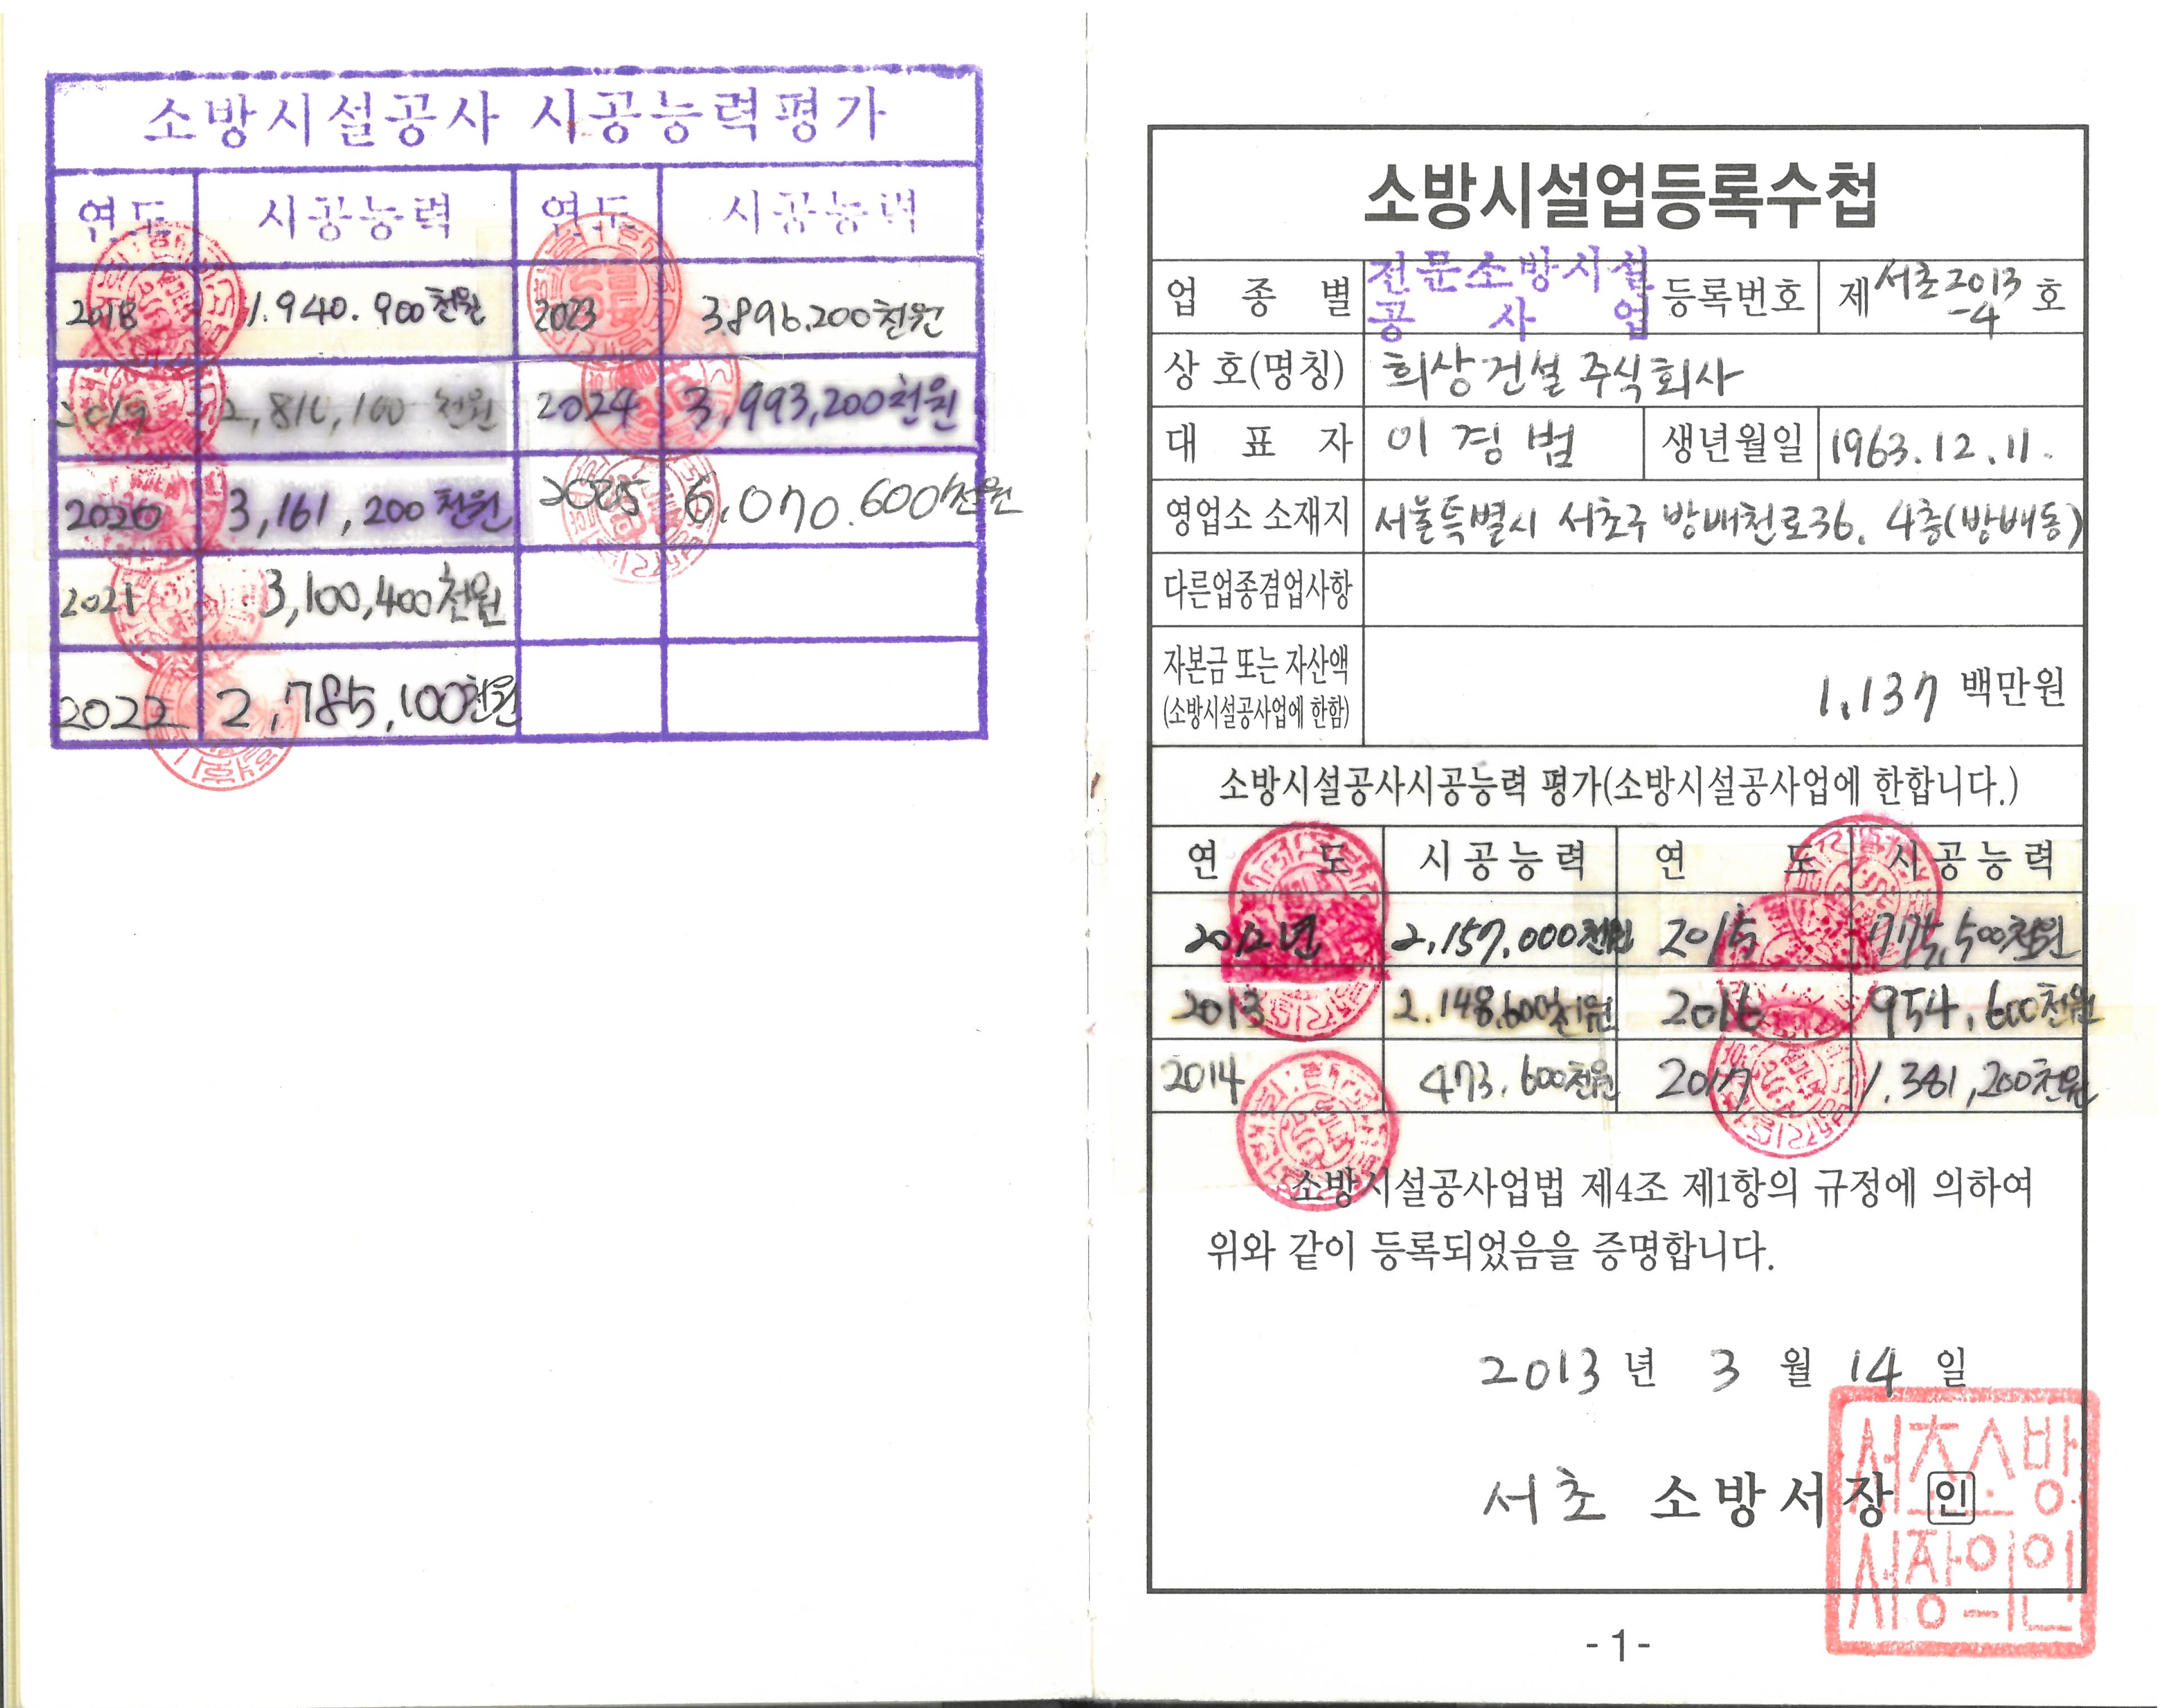 소방시설공사 시공능력평가
연도 시공능력 연도 시공능력
2018 1.940.900천원 2023 3896,200천원
2019 2,816,100 천원 2024 3,993,200천원
2020 3,161,200천원 2025 6,070.600천원
2021 3,100,400천원
2022 2,785,100천원
소방시설업등록수첩
업종별 전문소방시설공사업 등록번호 제 서초2013-4 호
상호(명칭) 희상건설 주식회사
대표자 이경범 생년월일 1963.12.11.
영업소 소재지 서울특별시 서초구 방배천로36. 4층(방배동)
다른업종겸업사항
자본금 또는 자산액
(소방시설공사업에 한함) 1,137 백만원
소방시설공사시공능력 평가(소방시설공사업에 한합니다.)
연도 시공능력 연도 시공능력
2012년 2,157,000천원 2015 775,500천원
2013 2.148,600천원 2016 954,600천원
2014 473,600천원 2017 1.381,200천원
소방시설공사업법 제4조 제1항의 규정에 의하여
위와 같이 등록되었음을 증명합니다.
2013년 3월 14일
서초 소방서장 인
서초소방
서장의인
-1-